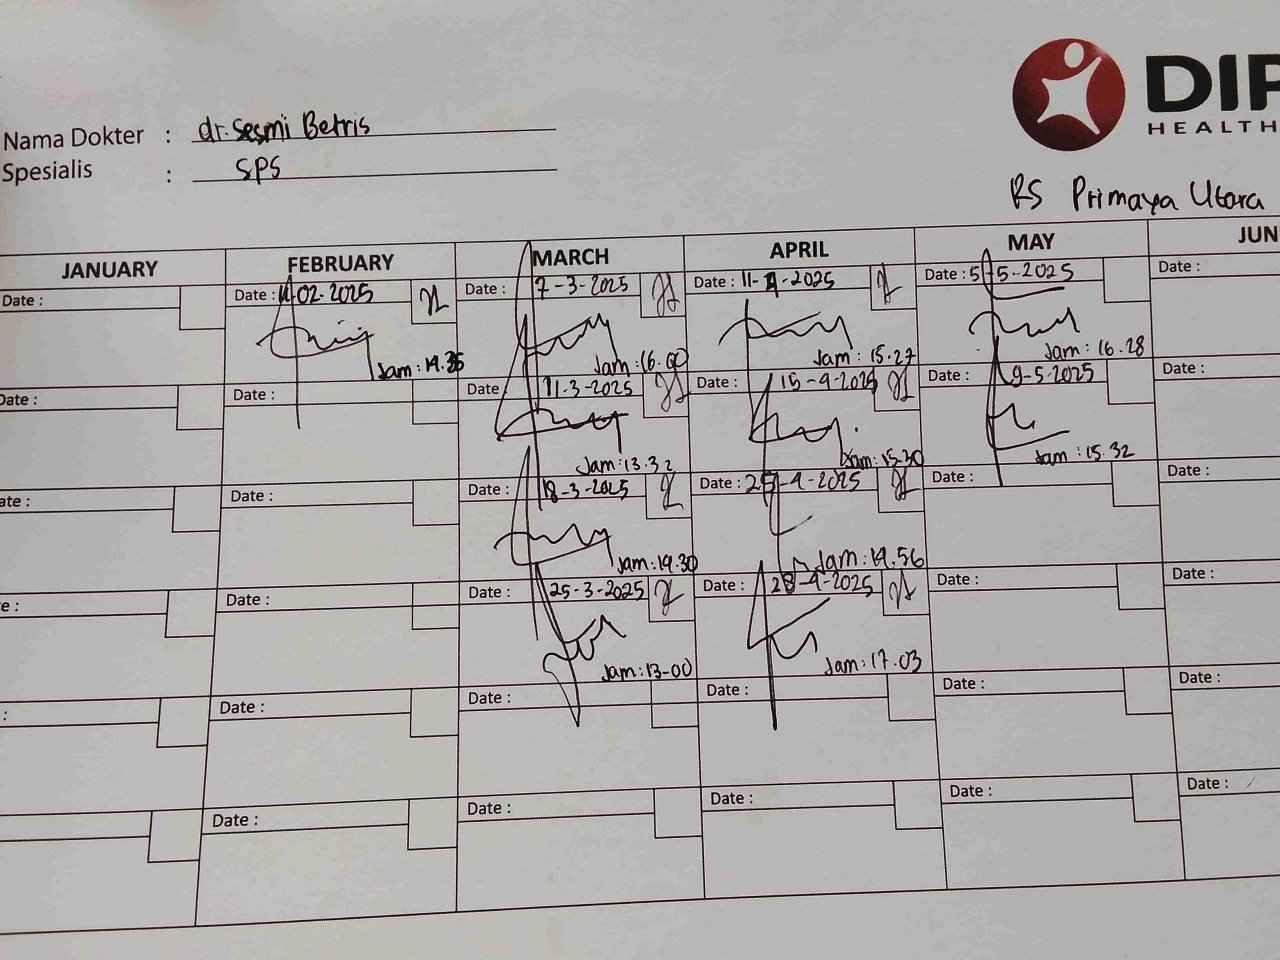 DIP
HEALTH
Nama Dokter : dr. Sesmi Betris
Spesialis : SPS
RS Primaya Utara
JANUARY FEBRUARY MARCH APRIL MAY JUN
Date : Date : 02-2025 Date : 7-3-2025 Date : 11-4-2025 Date : 5-5-2025 Date :
Jam: 19.35 Jam: 16.00 Jam: 15.27 Jam: 16.28
Date : Date : Date 11-3-2025 Date : 15-4-2025 Date : 9-5-2025 Date :
Jam: 13.32 Jam: 15.30 Jam: 15.32
ate : Date : Date : 18-3-2025 Date : 25-4-2025 Date : Date :
Jam: 19.30 Jam: 19.56
e : Date : Date : 25-3-2025 Date : 28-4-2025 Date : Date :
Jam: 13-00 Jam: 17.03
: Date : Date : Date : Date : Date :
Date : Date : Date : Date : Date :